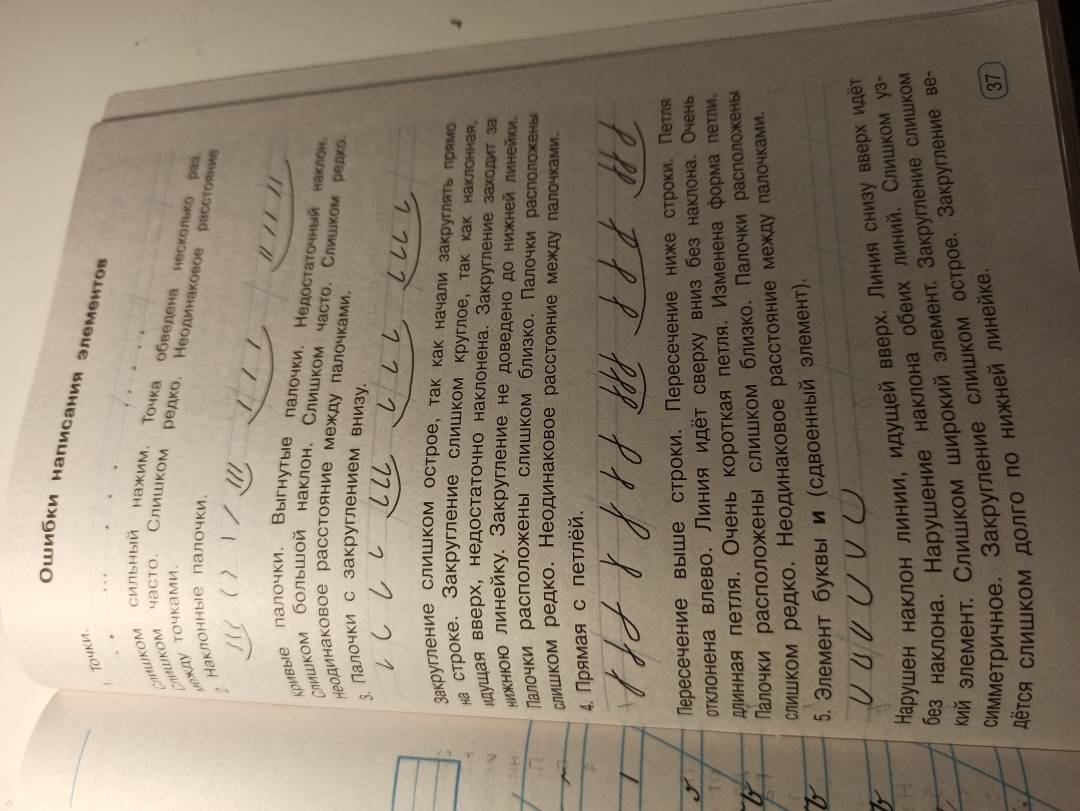 Ошибки написания элементов
1. Точки.
Слишком сильный нажим. Точка обведена несколько раз.
Слишком часто. Слишком редко. Неодинаковое расстояние
между точками.
2. Наклонные палочки.
Кривые палочки. Выгнутые палочки. Недостаточный наклон.
Слишком большой наклон. Слишком часто. Слишком редко.
Неодинаковое расстояние между палочками.
3. Палочки с закруглением внизу.
Закругление слишком острое, так как начали закруглять прямо
на строке. Закругление слишком круглое, так как наклонная,
идущая вверх, недостаточно наклонена. Закругление заходит за
нижнюю линейку. Закругление не доведено до нижней линейки.
Палочки расположены слишком близко. Палочки расположены
слишком редко. Неодинаковое расстояние между палочками.
4. Прямая с петлёй.
Пересечение выше строки. Пересечение ниже строки. Петля
отклонена влево. Линия идёт сверху вниз без наклона. Очень
длинная петля. Очень короткая петля. Изменена форма петли.
Палочки расположены слишком близко. Палочки расположены
слишком редко. Неодинаковое расстояние между палочками.
5. Элемент буквы и (сдвоенный элемент).
Нарушен наклон линии, идущей вверх. Линия снизу вверх идёт
без наклона. Нарушение наклона обеих линий. Слишком уз-
кий элемент. Слишком широкий элемент. Закругление слишком
симметричное. Закругление слишком острое. Закругление ве-
дётся слишком долго по нижней линейке.
37